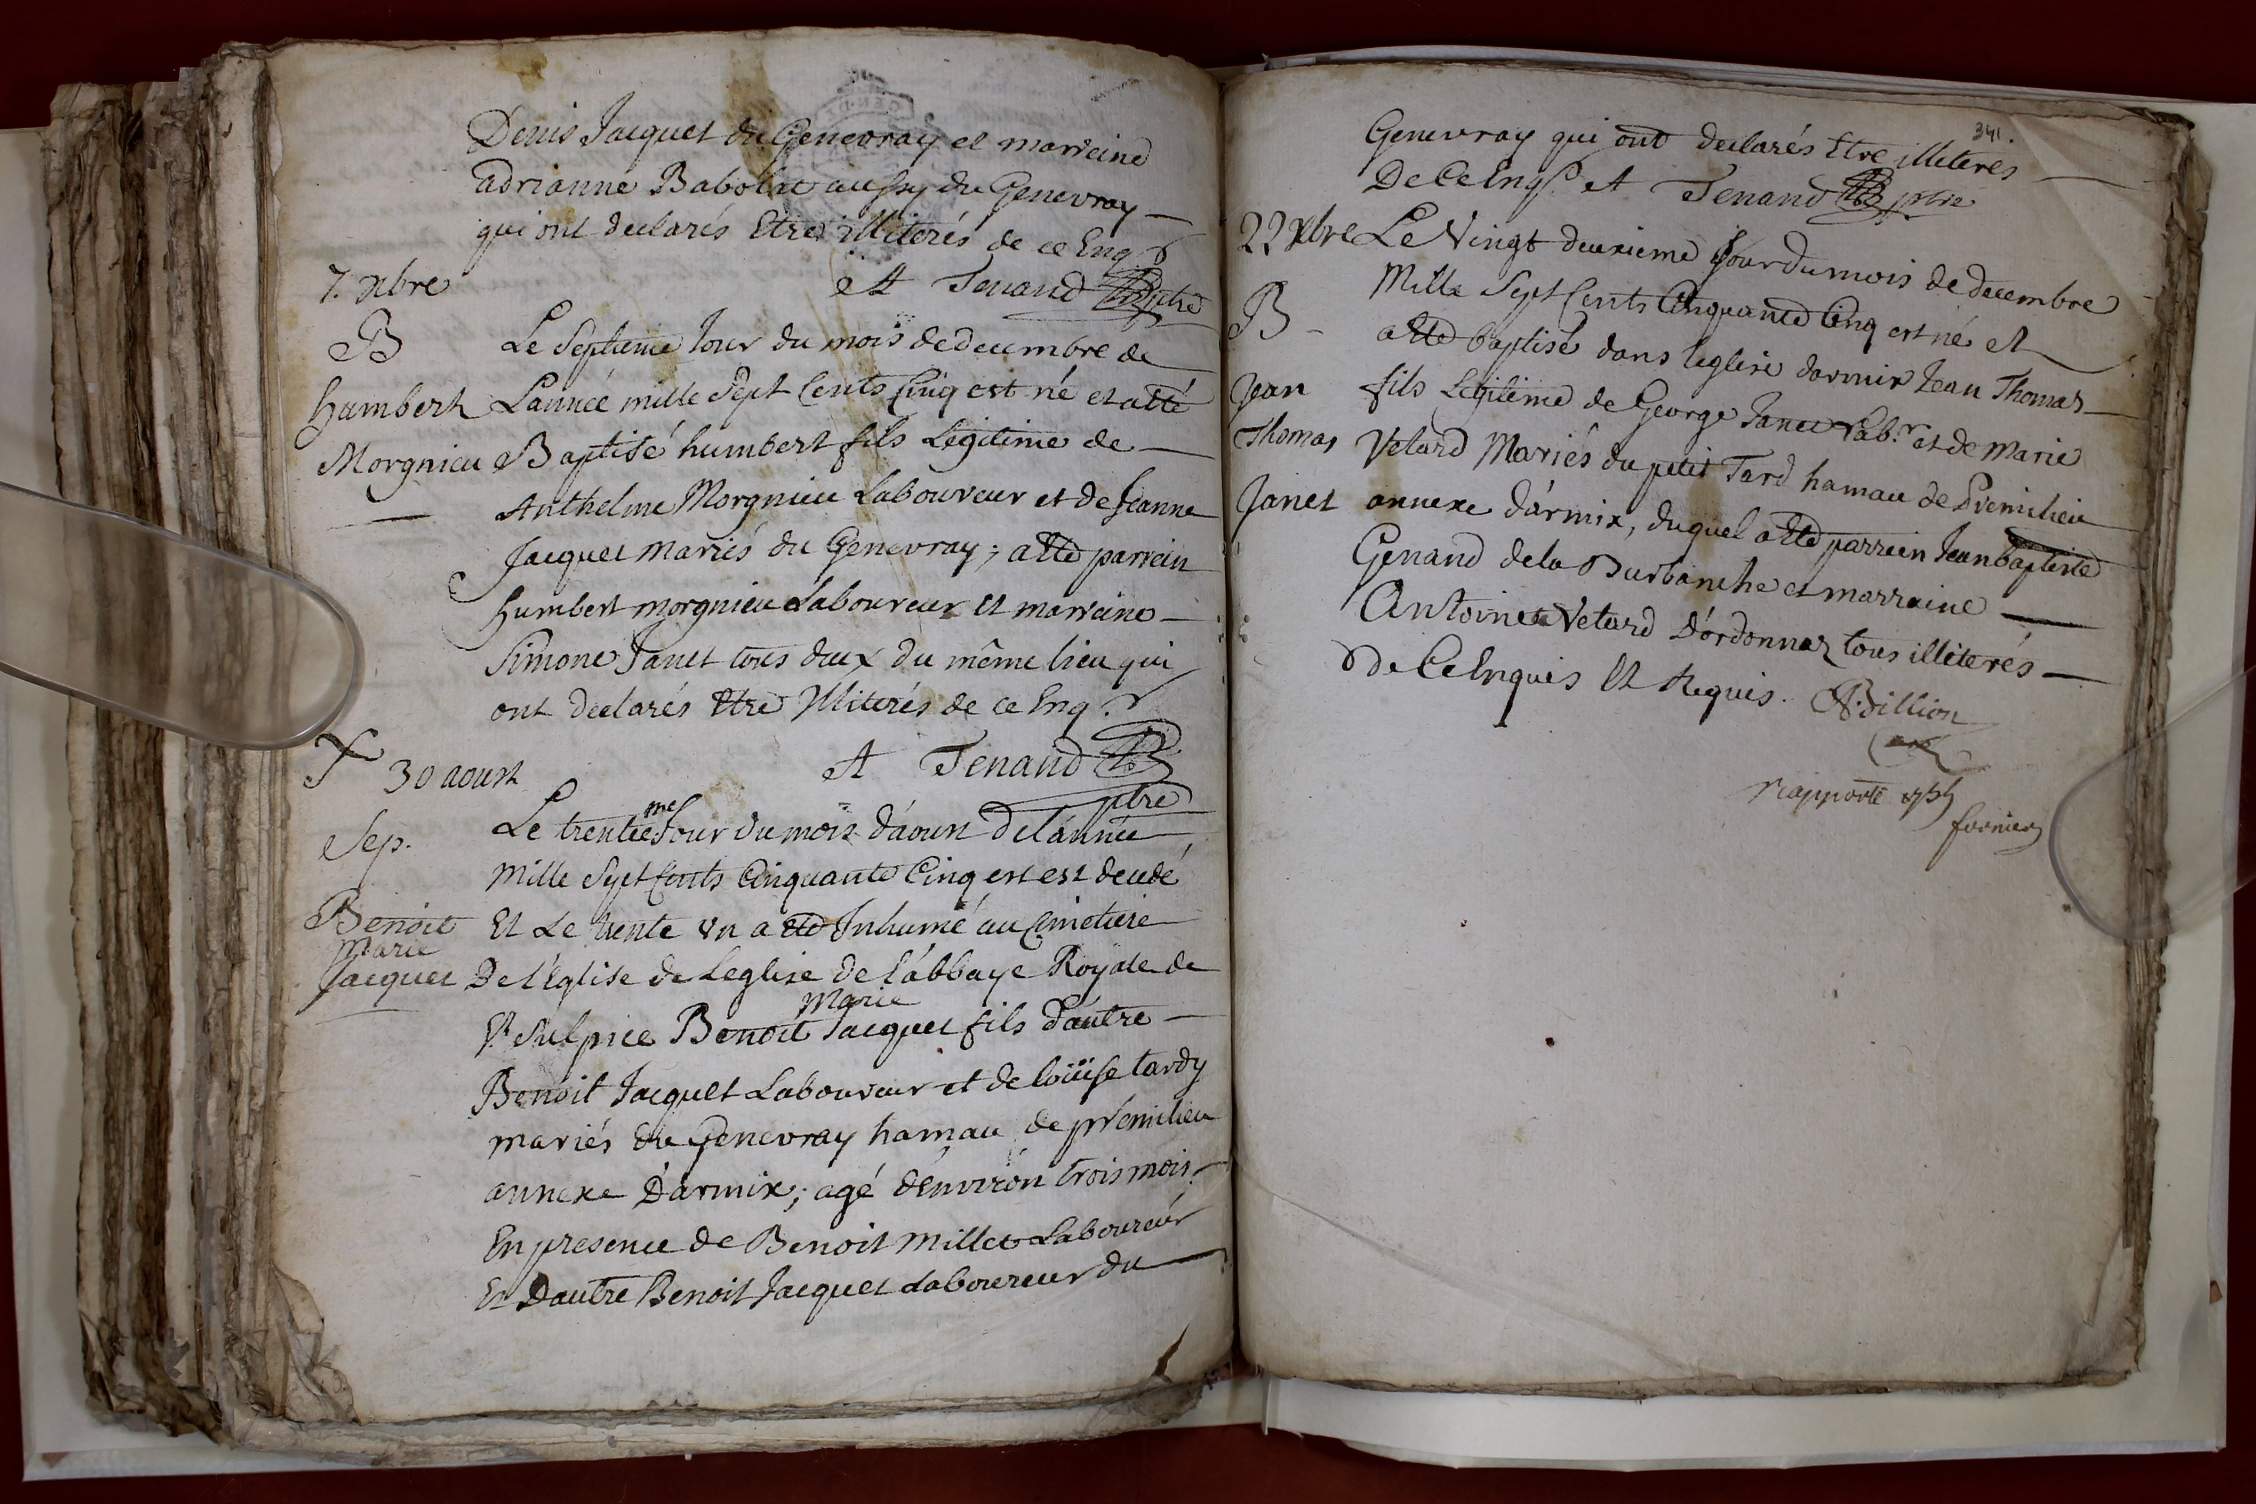 Denis Jacquet du Genevray et marreine
adrianne Babolat aussy du Genevray
qui ont declarés Etre illiterés de ce Enq.s
A Tenand ptre
7. xbre
B
humbert
Morgnieu
Le Septieme Jour du mois de decembre de
Lannée mille Sept Cents Cinq est né et a eté
Baptisé humbert fils Legitime de
Anthelme Morgnieu Laboureur et de Jeanne
Jacquet mariés du Genevray; a eté parrein
humbert morgnieu Laboureur Et marreine
Simone Janet tous deux du même lieu qui
ont declarés Etre Illiterés de ce Enq.s
A Tenand ptre
30 aoust
Sep.
Benoit
Marie
Jacquet
Le trentieme Jour du mois d'aoust De l'année
Mille Sept Cents Cinquante Cinq est est decedé
Et Le trente un a eté Inhumé au Cimetiere
De l'Eglise de Leglise de l'abbaye Royale de
St. Sulpice Benoit Marie Jacquet fils d'autre
Benoit Jacquet Laboureur et de Loüise tardy
mariés du Genevray hamau de prémilieu
annexe D'armix; agé d'Environ trois mois
En presence de Benoit Millet Laboureur
Et Dautre Benoit Jacquet Laboureur du
341.
Genevray qui ont declarés Etre illiterés
De Ce Enq.s A Tenand ptre
22 xbre
B
Jean
Thomas
Janet
Le Vingt deuxieme Jour du mois de decembre
Mille Sept Cents Cinquante Cinq est né et
a eté baptisé dans leglise darmix Jean Thomas
fils Legitime de George Janet Lab.r et de Marie
Vetard Mariés du petit Tard hamau de Premilieu
annexe d'armix, duquel a eté parrein Jean Baptiste
Genand de la Burbanche et marraine
Antoinet Vetard D'ordonnaz tous illiterés
de Ce Enquis Et Requis. Billion
rapporté